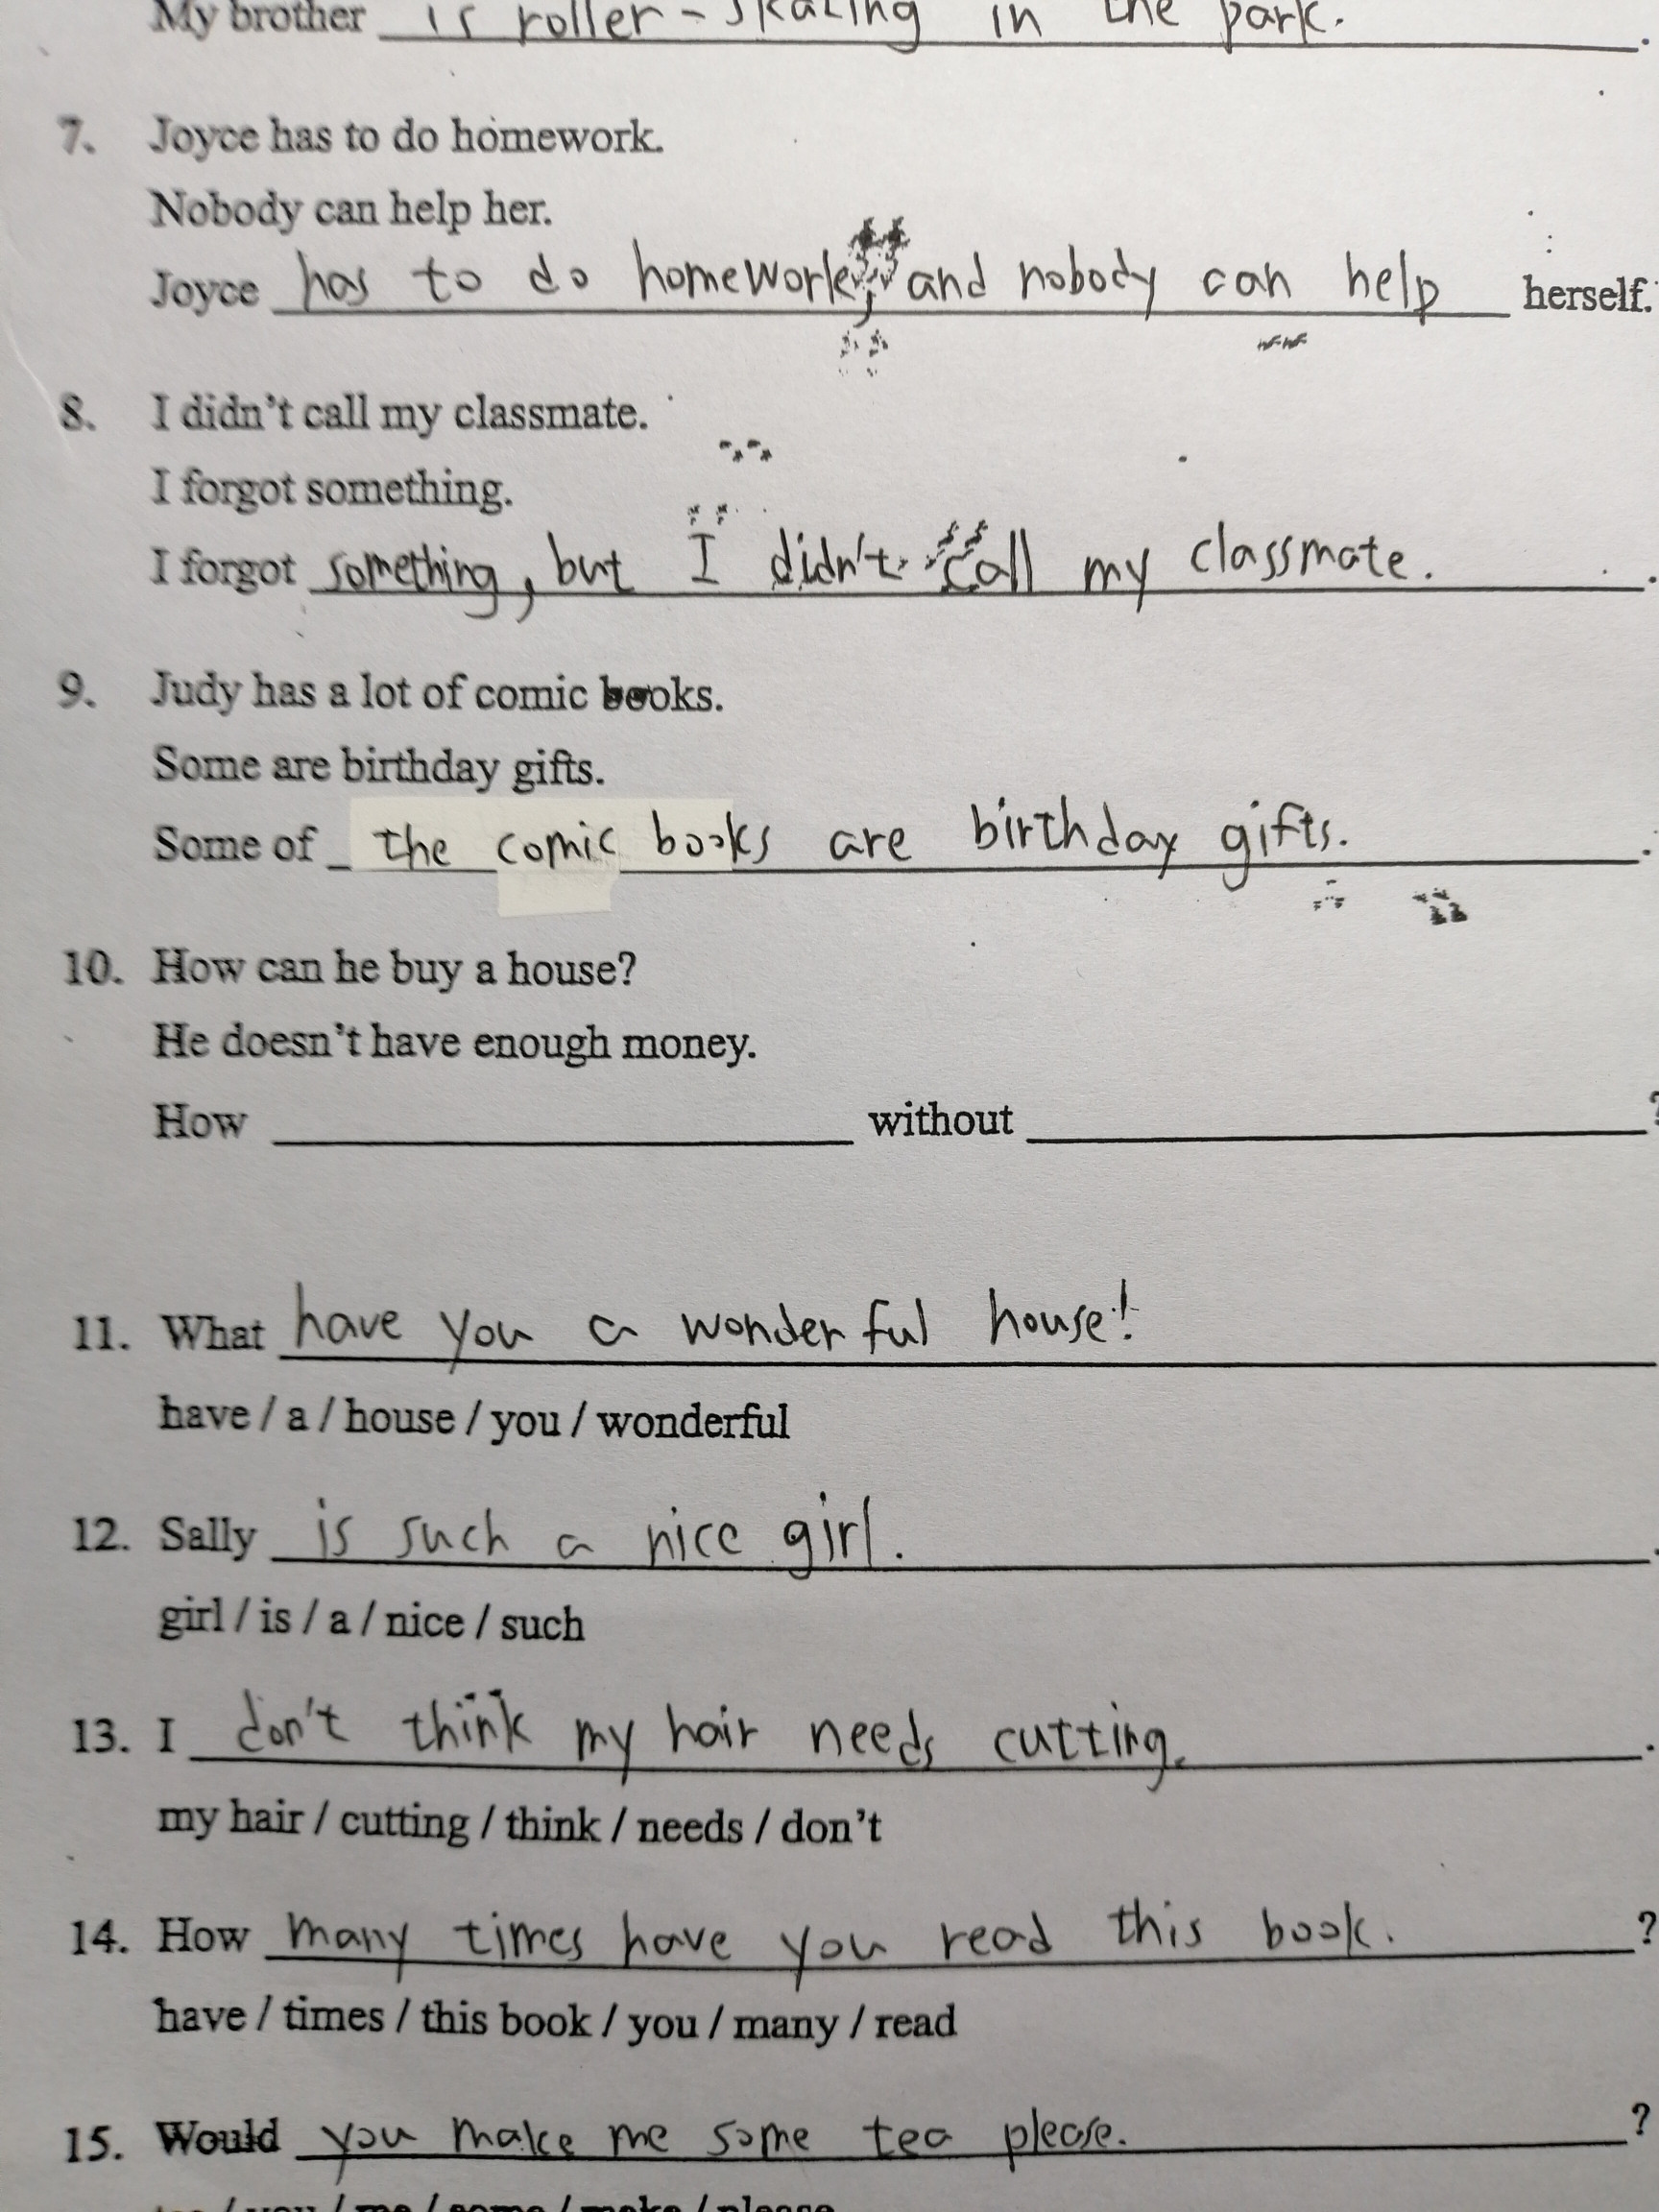 My brother is roller-skating in the park. .
7. Joyce has to do homework.
Nobody can help her.
Joyce has to do homework, and nobody can help herself.
8. I didn't call my classmate.
I forgot something.
I forgot something, but I didn't call my classmate. .
9. Judy has a lot of comic books.
Some are birthday gifts.
Some of the comic books are birthday gifts. .
10. How can he buy a house?
He doesn't have enough money.
How ____ without ____ ?
11. What have you a wonderful house!
have / a / house / you / wonderful
12. Sally is such a nice girl. .
girl / is / a / nice / such
13. I don't think my hair needs cutting. .
my hair / cutting / think / needs / don't
14. How many times have you read this book. ?
have / times / this book / you / many / read
15. Would you make me some tea please. ?
tea / you / me / some / make / please